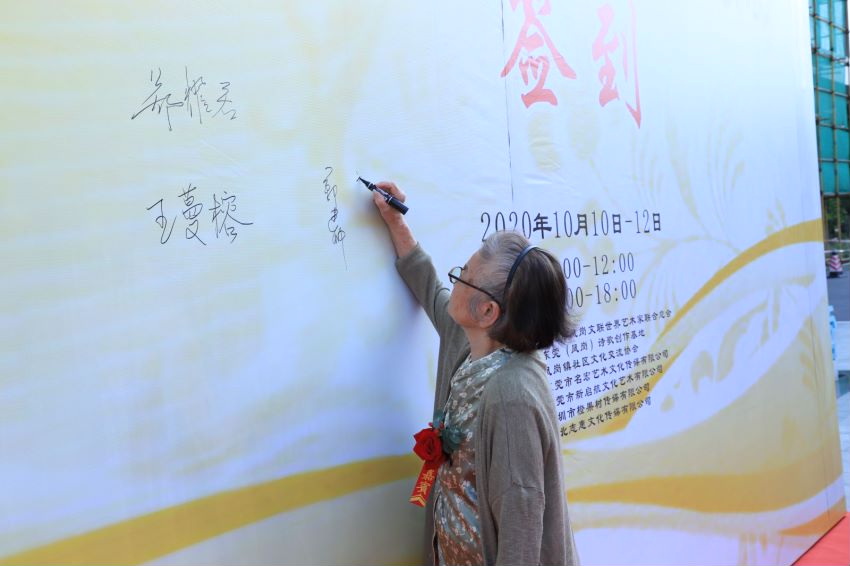 签到
王蔓榕
2020年10月10日-12日
00-12:00
00-18:00
凤岗文联世界艺术家联合总会
东莞（凤岗）诗歌创作基地
凤岗镇社区文化交流协会
莞市名宏艺术文化传媒有限公司
莞市新启航文化艺术有限公司
圳市橙果树传媒有限公司
北志惠文化传媒有限公司
嘉宾